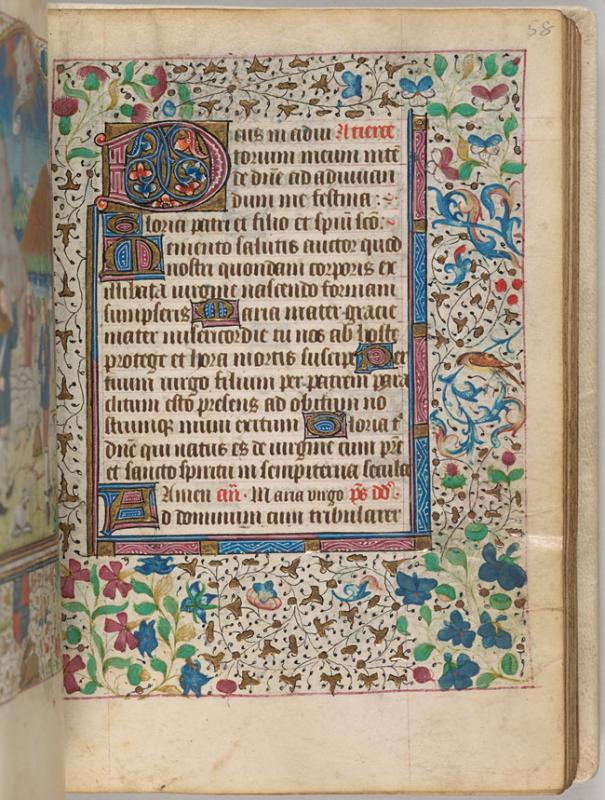 58
Deus in adiu A tierce
torium meum inte
de dñe ad adiuuan
dum me festina :
Gloria patri et filio et spiũ scõ:
Memento salutis auctor quod
nostri quondam corporis ex
illibata uirgine nascendo formam
sumpseris Maria mater gracie
mater misericordie tu nos ab hoste
protege et hora mortis suscipe Per
tuum uirgo filium per patrem para
clitum esto presens ad obitum no
strumq muni exitum Gloria t'
dñe qui natus es de uirgine cum pr̃e
et sancto spiritu in sempiterna secula
Amen añ. Maria uirgo p̃s dd̃.
Ad dominum cum tribularer